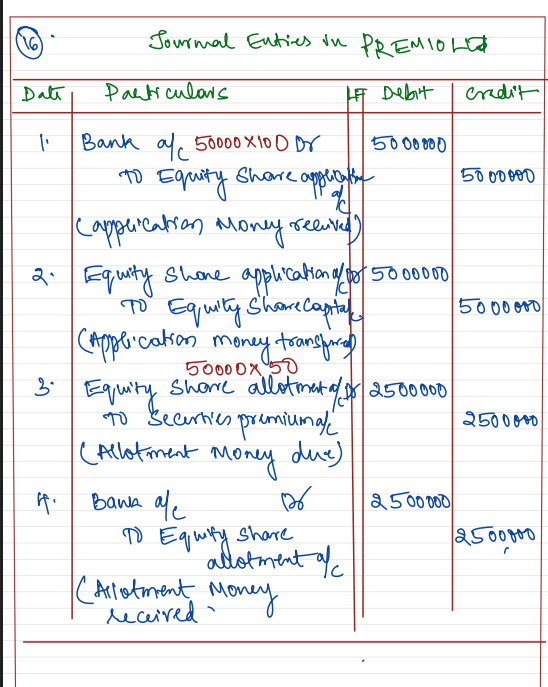 16.
Journal Entries in PREMIO Ltd
Date Particulars LF Debit Credit
1. Bank a/c 50000×100 Dr 5000000
TO Equity Share application a/c 5000000
(application Money received)
2. Equity Share application a/c Dr 5000000
TO Equity Share Capital 5000000
(Application money transfered)
50000×50
3. Equity Share allotment a/c Dr 2500000
TO Securties premium a/c 2500000
(Allotment Money due)
4. Bank a/c Dr 2500000
TO Equity Share 2500000
allotment a/c
(Allotment Money
received